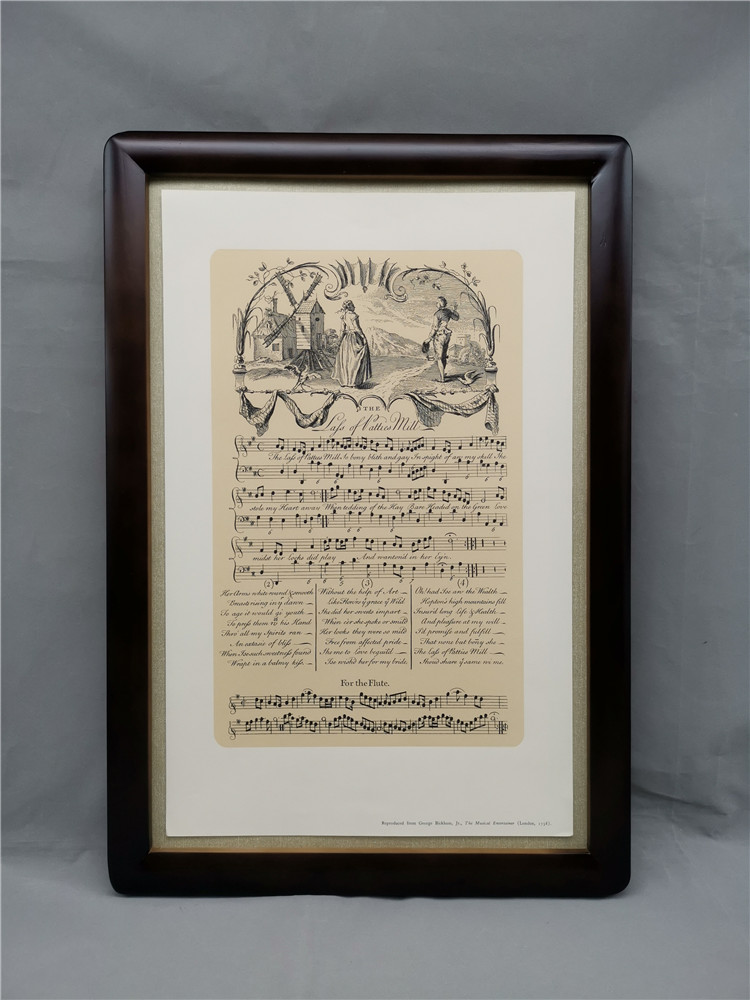 THE
Lass of Patties Mill
The Lass of Patties Mill So bony blith and gay In spight of aw my skill She
stole my Heart away When tedding of the Hay Bare Headed on the Green love
midst her Locks did play And wanton'd in her Eyn
(2) (3) (4)
Her Arms white round & smooth
Breasts rising in y dawn
To age it would gi' youth
To press them wi his Hand
Thro' all my Spirits ran
An extasie of bliss
When I such sweetness found
Wrapt in a balmy kiss
Without the help of Art
Like Flow'rs y grace y Wild
She did her sweets impart
When e'er she spoke or smild
Her looks they were so mild
Free from affected pride
She me to Love beguild
Ise wish'd her for my bride
Oh! had I aw the Wealth
Hopton's high mountains fill
Insur'd long Life & Health
And pleasure at my will
I'd promise and fulfill
That none but bony she
The Lass of Patties Mill
Shou'd share y same wi me.
For the Flute.
Reproduced from George Bickham, Jr., The Musical Entertainer (London, 1738).